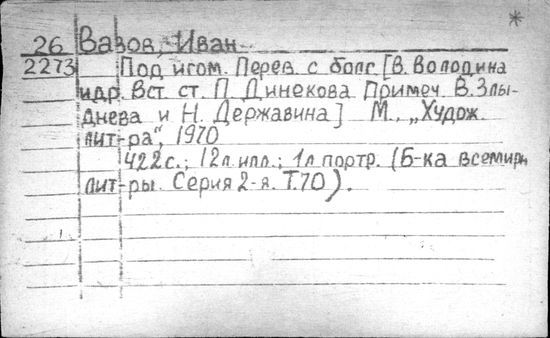 *
26 Вазов, Иван
2273 Под игом. Перев. с болг. [В. Володина
и др. Вст. ст. П. Динекова. Примеч. В. Злы-
днева и Н. Державина] М., „Худож.
лит-ра", 1970
422 с.; 12 л. илл.; 1 л. портр. (Б-ка всемирн
лит-ры. Серия 2-я. Т.70).